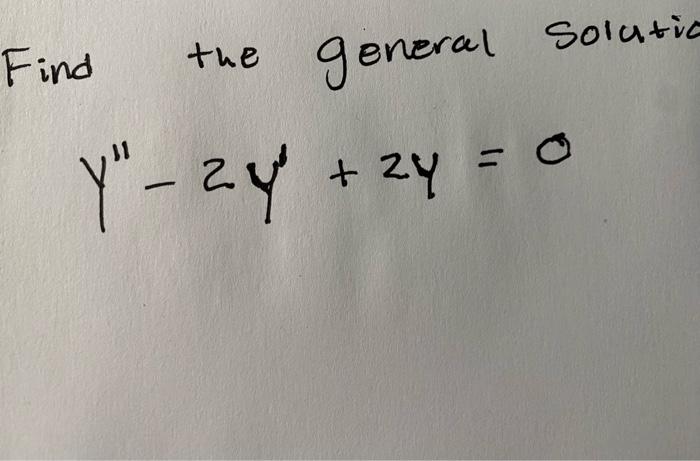 Find the general Solutio
y" - 2y' + 2y = 0